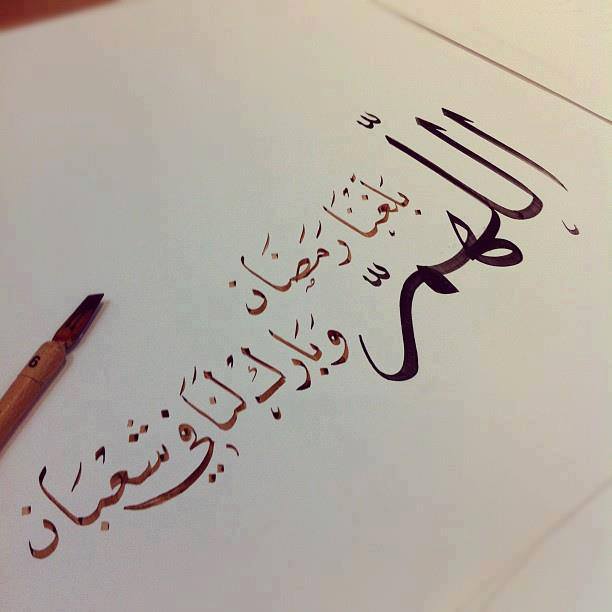 اللَّهُمَّ
بَلِّغْنَا رَمَضَان
وبَارِك لَنَا فِي شَعْبَان
6